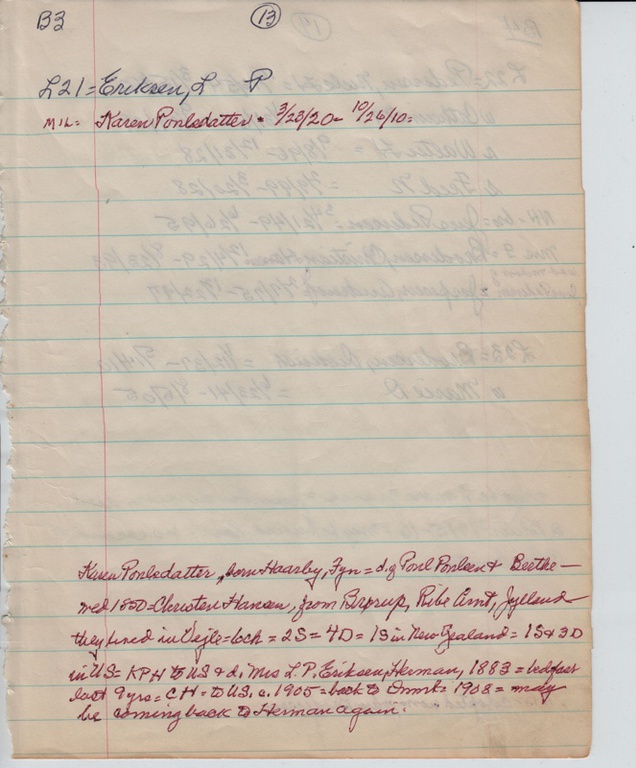 B3 13
L21 = Eriksen, L P
MIL = Karen Poulsdatter = 3/28/20 - 10/26/10 =
Karen Poulsdatter, born Haarby, Fyn = d. of Poul Poulsen & Berthe —
med 1850 = Christen Hansen, from Brprup, Ribe Amt, Jylland
they lived in Vejle = 2S = 4D = 1S in New Zealand = 1S & 3D
in US = KPH to US & d, Mrs L. P. Eriksen, Herman, 1883 = bedfast
last 9 yrs = CH = to US, c. 1905 = back to Dnmk = 1908 = may
be coming back to Herman again.